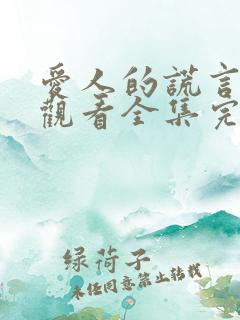 愛人的謊言
觀看全集完
绿荷子
未经同意禁止转载